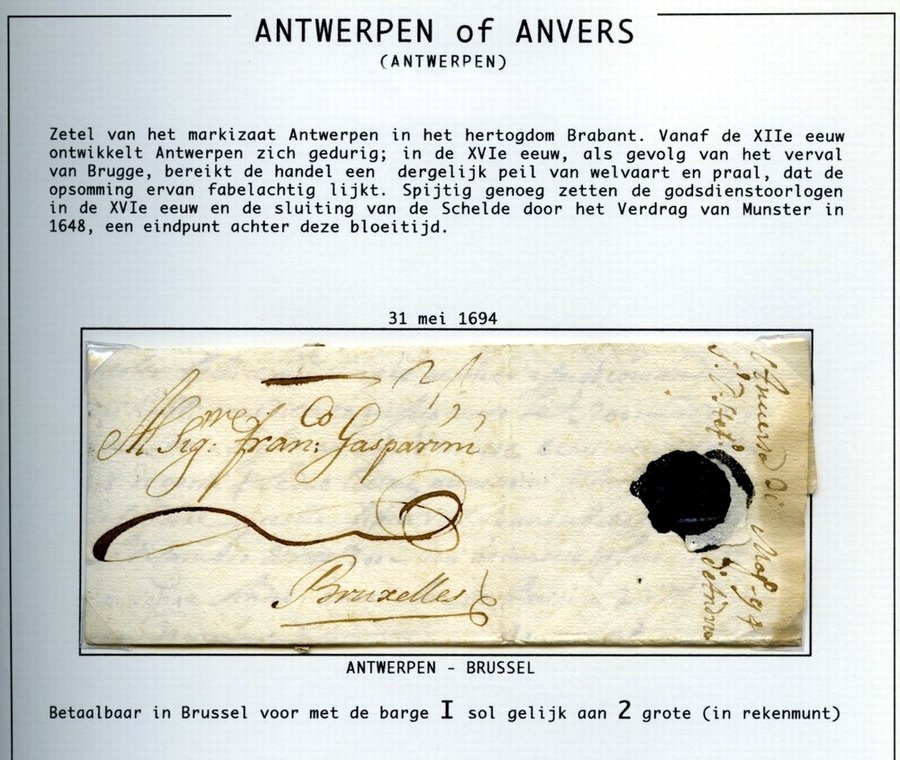 ANTWERPEN of ANVERS
(ANTWERPEN)
Zetel van het markizaat Antwerpen in het hertogdom Brabant. Vanaf de XIIe eeuw
ontwikkelt Antwerpen zich gedurig; in de XVIe eeuw, als gevolg van het verval
van Brugge, bereikt de handel een dergelijk peil van welvaart en praal, dat de
opsomming ervan fabelachtig lijkt. Spijtig genoeg zetten de godsdienstoorlogen
in de XVIe eeuw en de sluiting van de Schelde door het Verdrag van Munster in
1648, een eindpunt achter deze bloeitijd.
31 mei 1694
Al Sig.re fran.Co Gasparini
Bruxelles
ANTWERPEN - BRUSSEL
Betaalbaar in Brussel voor met de barge I sol gelijk aan 2 grote (in rekenmunt)